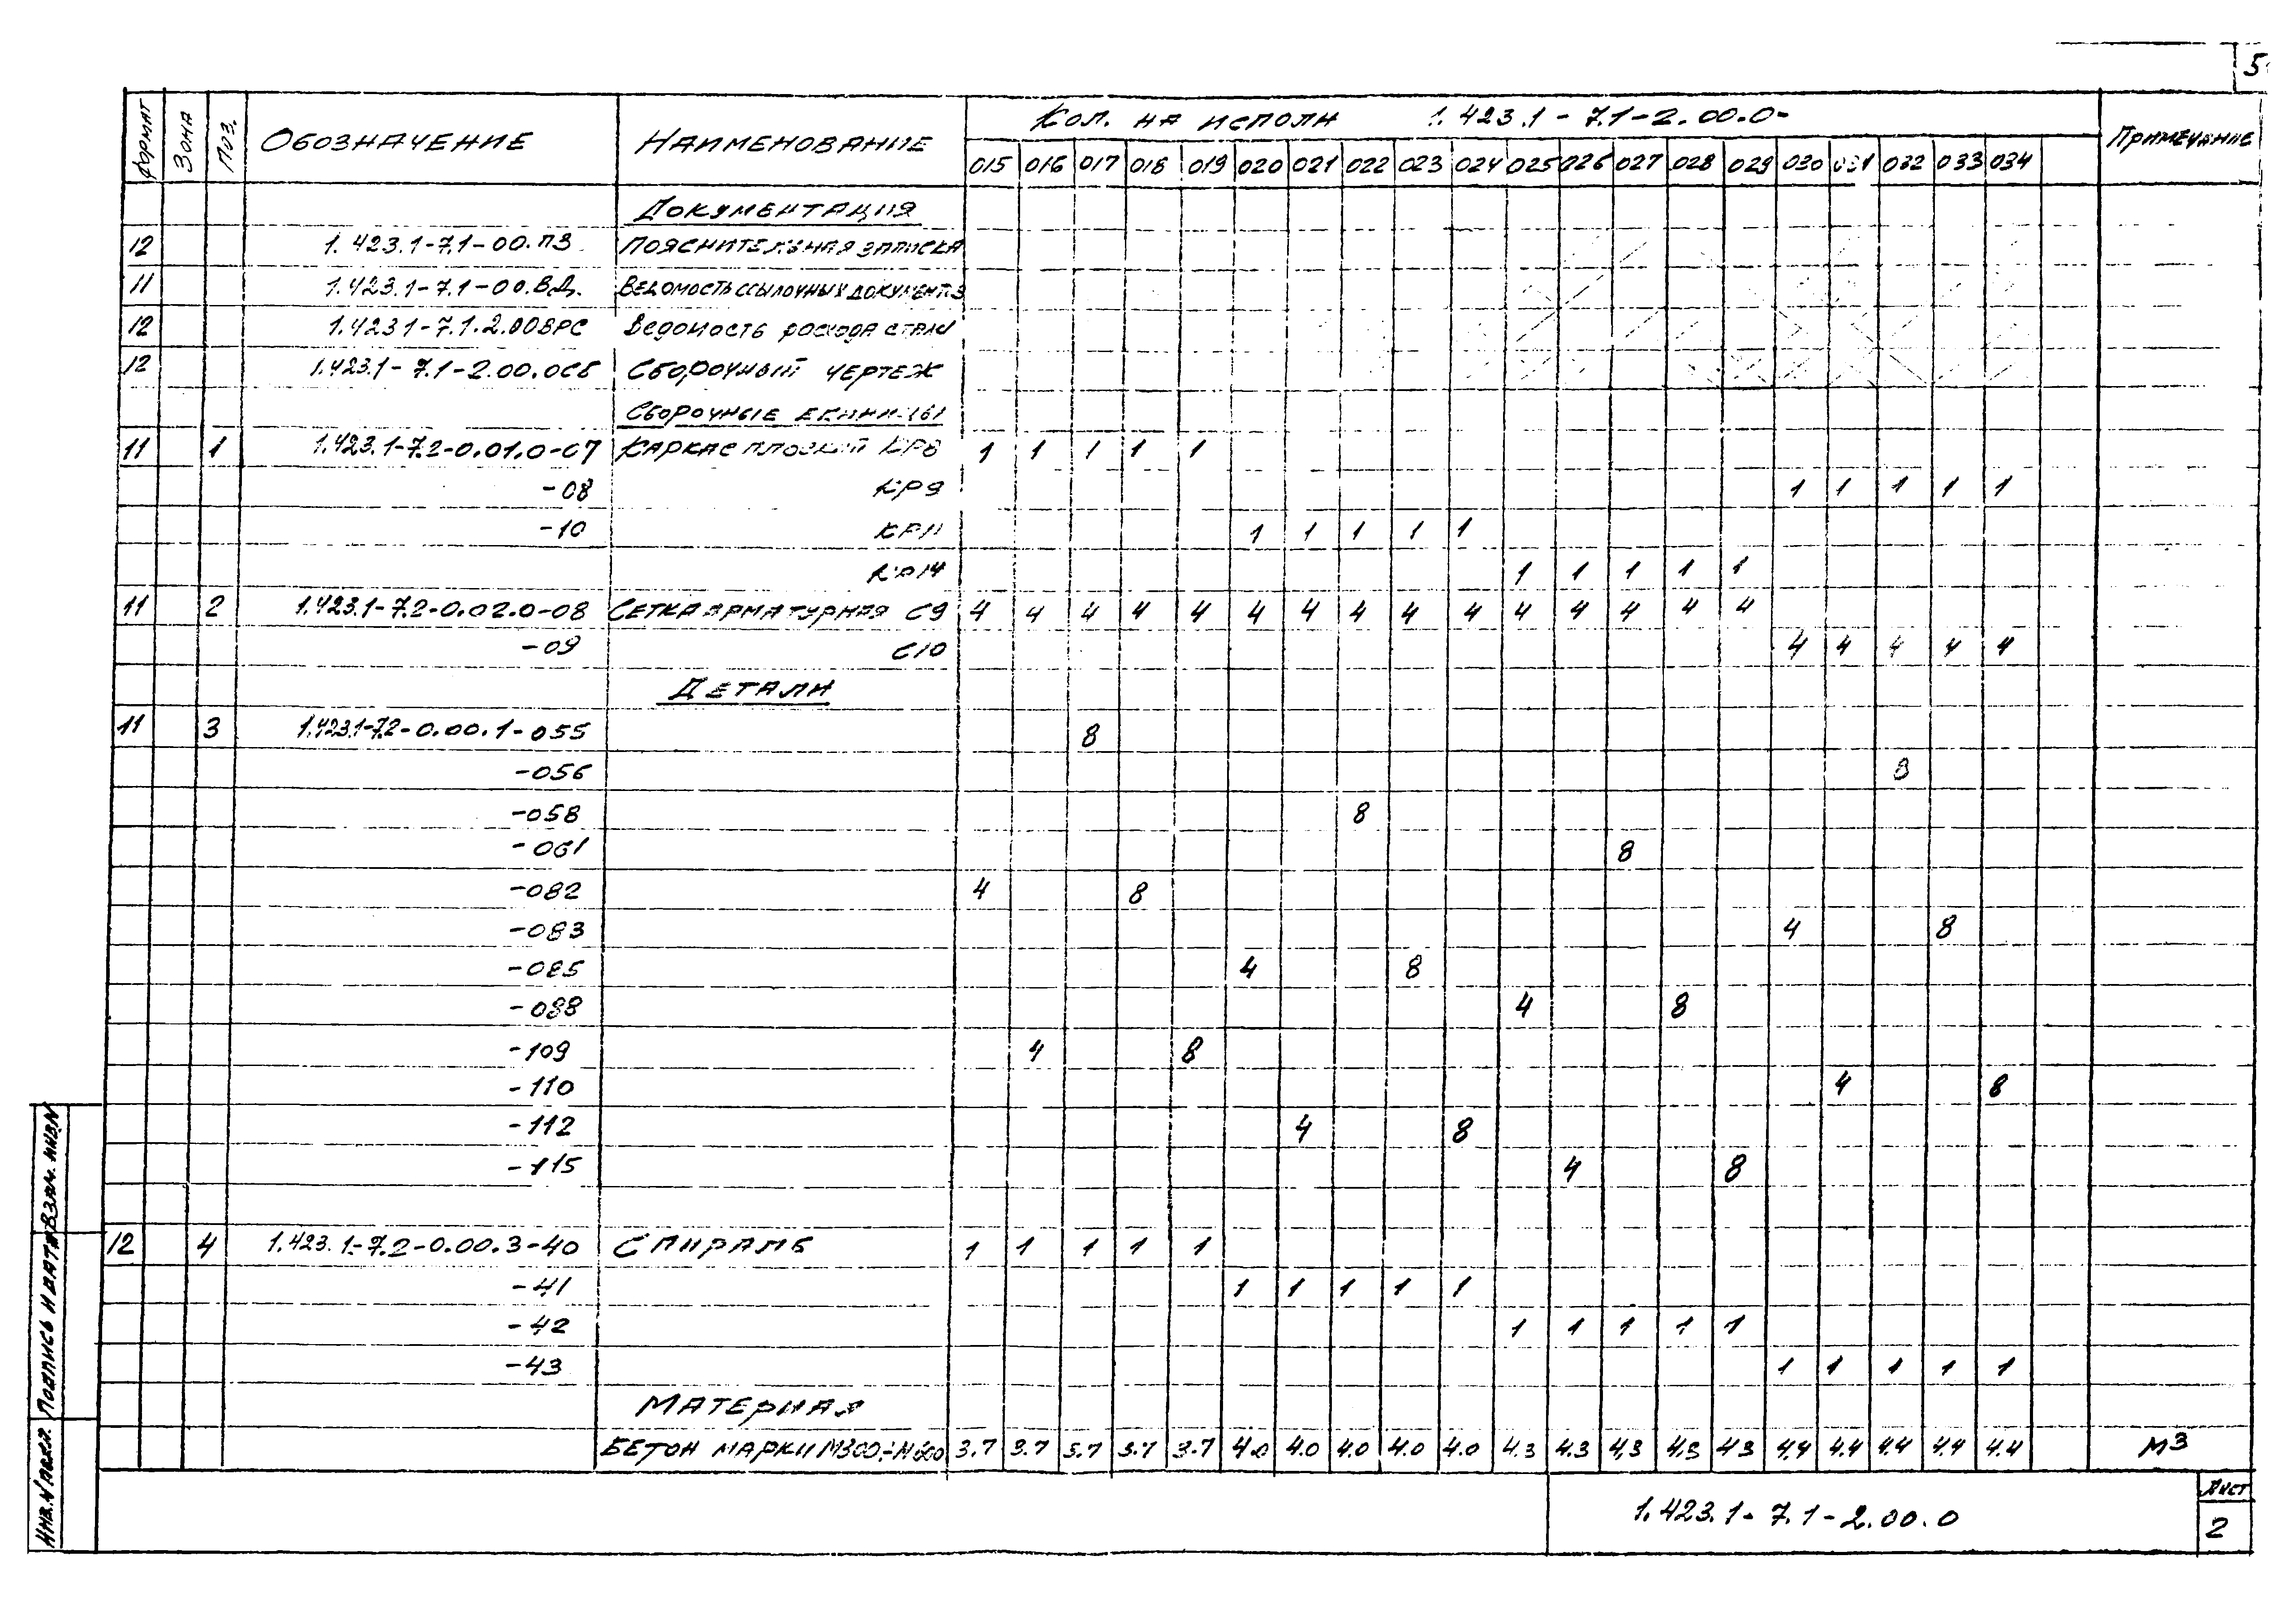 5
Формат Зона Поз. Обозначение Наименование Кол. на исполн 1.423.1-7.1-2.00.0- Примечание
015 016 017 018 019 020 021 022 023 024 025 026 027 028 029 030 031 032 033 034
Документация
12 1.423.1-7.1-00.ПЗ Пояснительная записка
11 1.423.1-7.1-00.ВД. Ведомость ссылочных
12 1.423 1-7.1.2.00ВРС Ведомость расхода стали
12 1.423.1-7.1-2.00.0СБ Сборочный чертеж
Сборочные
11 1 1.423.1-7.2-0.01.0-07 Каркас плоский КР8 1 1 1 1 1
-08 КР9 1 1 1 1 1
-10 КР11 1 1 1 1 1
КР14 1 1 1 1 1
11 2 1.423.1-7.2-0.02.0-08 Сетка арматурная С9 4 4 4 4 4 4 4 4 4 4 4 4 4 4 4
-09 С10 4 4 4 4 4
Детали
11 3 1.423.1-7.2-0.00.1-055 8
-056 8
-058 8
-061 8
-082 4 8
-083 4 8
-085 4 8
-088 4 8
-109 4 8
-110 4 8
-112 4 8
-115 4 8
12 4 1.423.1-7.2-0.00.3-40 Спираль 1 1 1 1 1
-41 1 1 1 1 1
-42 1 1 1 1 1
-43 1 1 1 1 1
Материал
Бетон марки М300÷ 3.7 3.7 3.7 3.7 3.7 4.0 4.0 4.0 4.0 4.0 4.3 4.3 4.3 4.3 4.3 4.4 4.4 4.4 4.4 4.4 М3
1.423.1-7.1-2.00.0
Лист
2
Инв.N подл. Подпись и дата Взам. инв.N